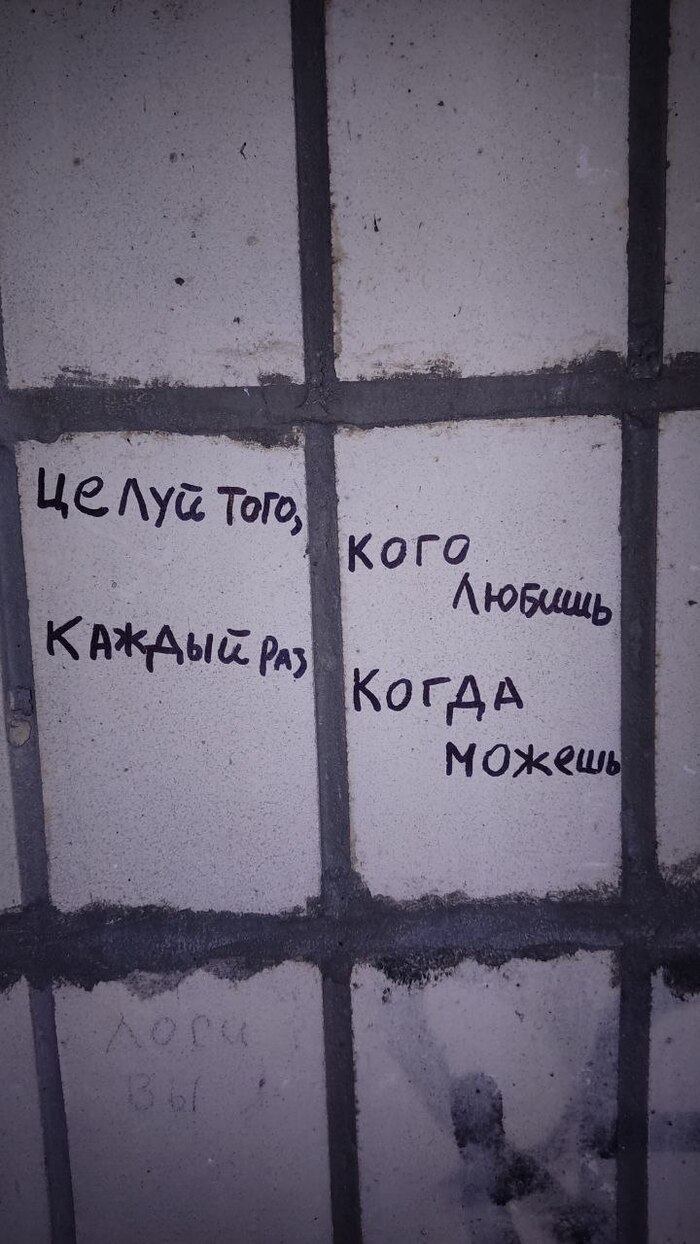 Целуй того,
кого
любишь
Каждый раз
когда
можешь
Лоси
вы